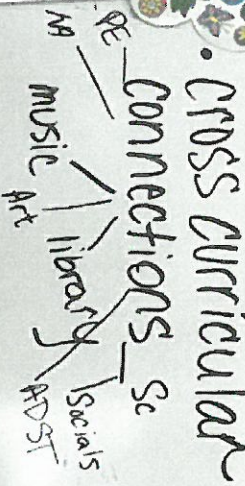 • Cross Curricular
Connections
PE
music
Art
library
Socials
ADST
Sc